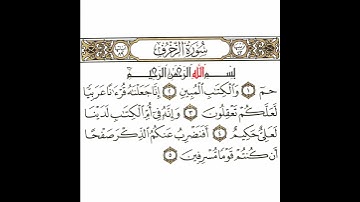 سُورَةُ الزُّخْرُفِ
بِسْمِ اللَّهِ الرَّحْمَٰنِ الرَّحِيمِ
حمٓ ١ وَالْكِتَابِ الْمُبِينِ ٢ إِنَّا جَعَلْنَاهُ قُرْءَانًا عَرَبِيًّا
لَعَلَّكُمْ تَعْقِلُونَ ٣ وَإِنَّهُ فِي أُمِّ الْكِتَابِ لَدَيْنَا
لَعَلِيٌّ حَكِيمٌ ٤ أَفَنَضْرِبُ عَنكُمُ الذِّكْرَ صَفْحًا
أَن كُنتُمْ قَوْمًا مُّسْرِفِينَ ٥